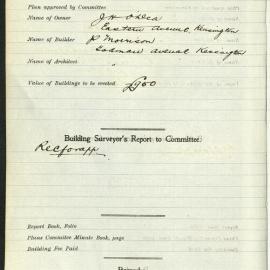 Plan approved by Committee
Name of Owner J H O'Dea
Eastern Avenue, Kensington
Name of Builder R Morrison
Todman Avenue Kensington
Name of Architect "
Value of Buildings to be erected £900
Building Surveyor's Report to Committee
Rec for app
Report Book, Folio
Plans Committee Minute Book, page
Building Fee Paid